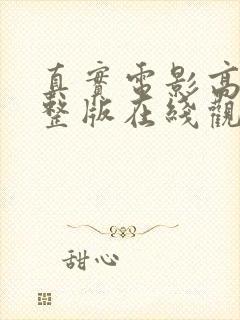 真實電影高
整版在綫觀
甜心